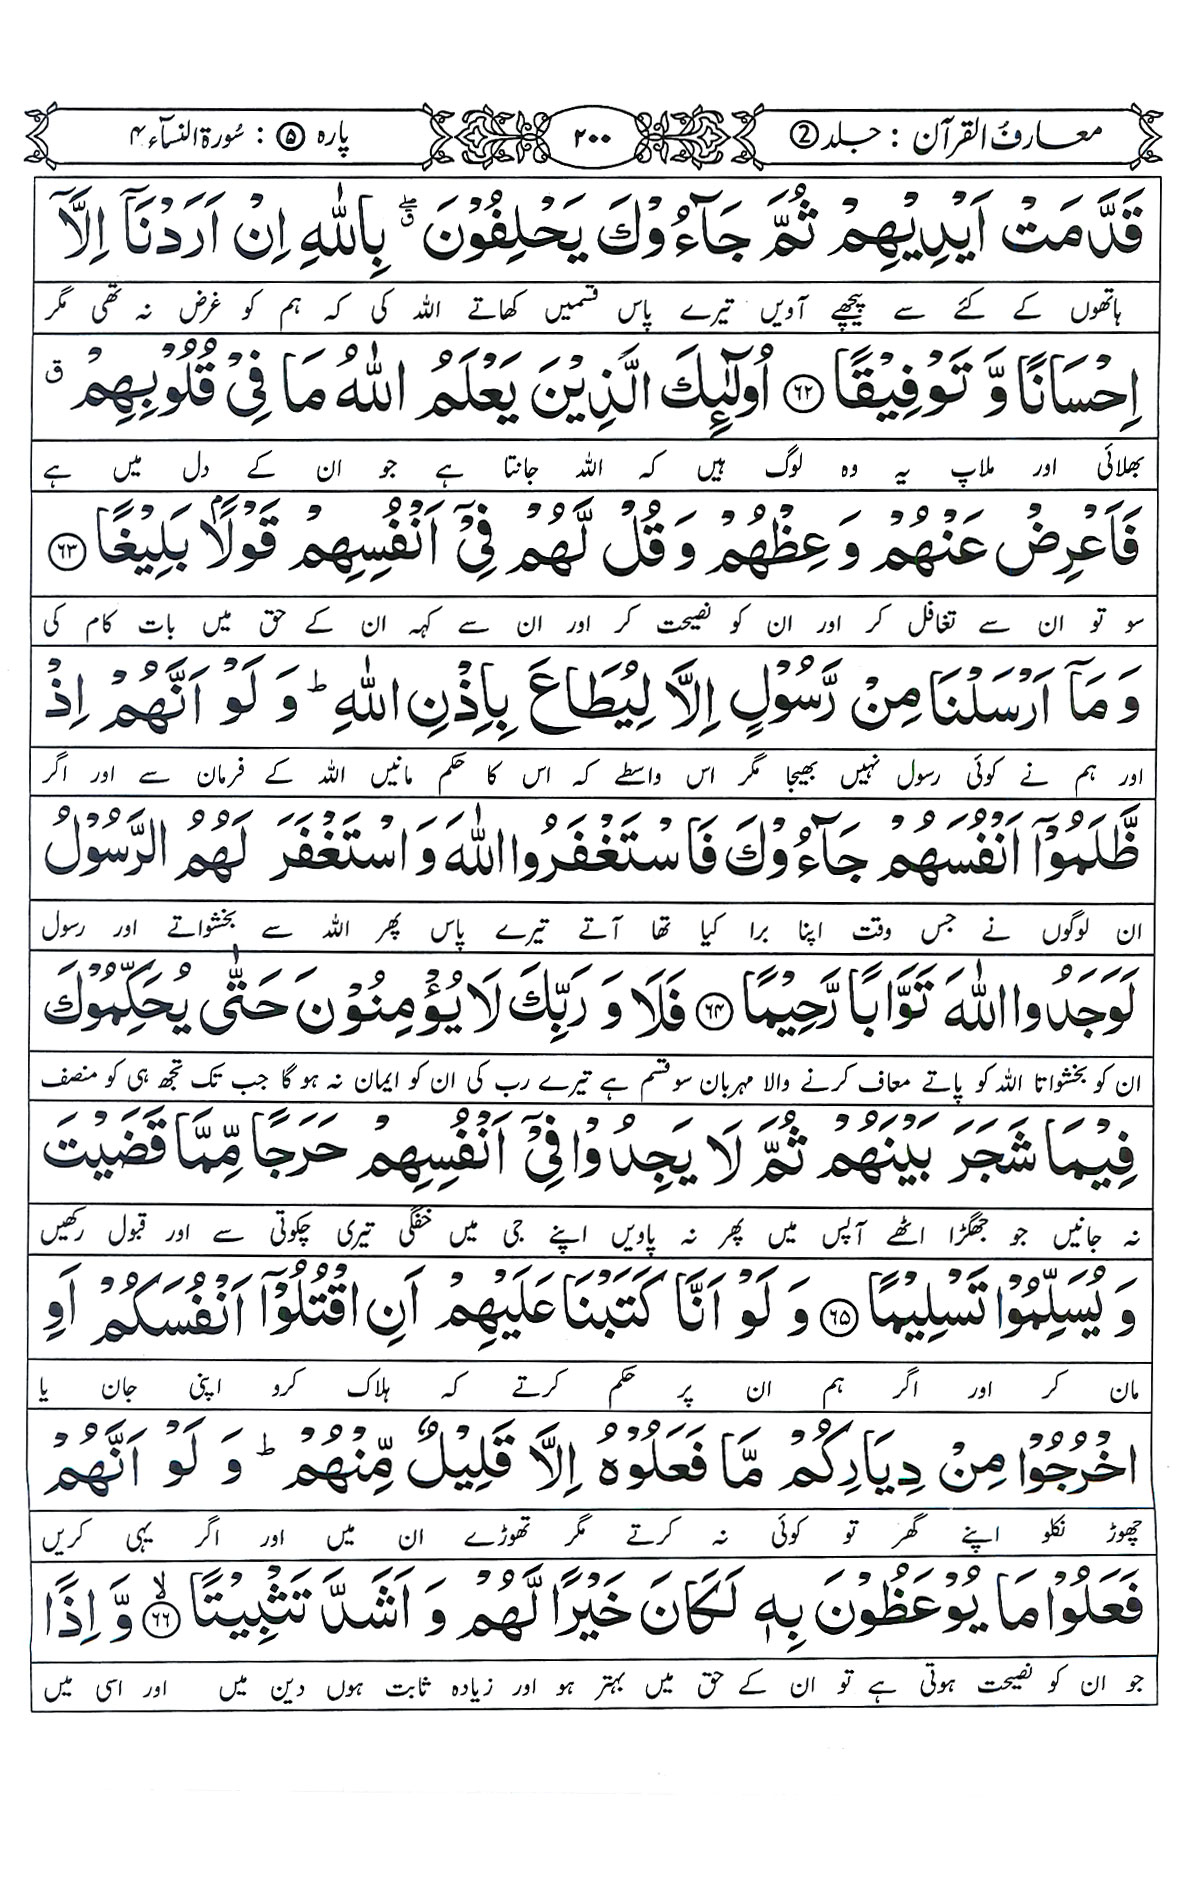 معارفُ القرآن : جلد ②
۲۰۰
پارہ ۵ : سُورۃ النسآء ۴
قَدَّمَتْ اَیْدِیْهِمْ ثُمَّ جَآءُوْكَ یَحْلِفُوْنَ ۖۗ بِاللّٰهِ اِنْ اَرَدْنَاۤ اِلَّاۤ
ہاتھوں کے کئے سے پیچھے آویں تیرے پاس قسمیں کھاتے اللہ کی کہ ہم کو غرض نہ تھی مگر
اِحْسَانًا وَّ تَوْفِیْقًا ﴿۶۲﴾ اُولٰٓىِٕكَ الَّذِیْنَ یَعْلَمُ اللّٰهُ مَا فِیْ قُلُوْبِهِمْ ق
بھلائی اور ملاپ یہ وہ لوگ ہیں کہ اللہ جانتا ہے جو ان کے دل میں ہے
فَاَعْرِضْ عَنْهُمْ وَ عِظْهُمْ وَ قُلْ لَّهُمْ فِیْۤ اَنْفُسِهِمْ قَوْلًۢا بَلِیْغًا ﴿۶۳﴾
سو تو ان سے تغافل کر اور ان کو نصیحت کر اور ان سے کہہ ان کے حق میں بات کام کی
وَ مَاۤ اَرْسَلْنَا مِنْ رَّسُوْلٍ اِلَّا لِیُطَاعَ بِاِذْنِ اللّٰهِ ؕ وَ لَوْ اَنَّهُمْ اِذْ
اور ہم نے کوئی رسول نہیں بھیجا مگر اس واسطے کہ اس کا حکم مانیں اللہ کے فرمان سے اور اگر
ظَّلَمُوْۤا اَنْفُسَهُمْ جَآءُوْكَ فَاسْتَغْفَرُوا اللّٰهَ وَ اسْتَغْفَرَ لَهُمُ الرَّسُوْلُ
ان لوگوں نے جس وقت اپنا برا کیا تھا آتے تیرے پاس پھر اللہ سے بخشواتے اور رسول
لَوَجَدُوا اللّٰهَ تَوَّابًا رَّحِیْمًا ﴿۶۴﴾ فَلَا وَ رَبِّكَ لَا یُؤْمِنُوْنَ حَتّٰی یُحَكِّمُوْكَ
ان کو بخشواتا اللہ کو پاتے معاف کرنے والا مہربان سو قسم ہے تیرے رب کی ان کو ایمان نہ ہو گا جب تک تجھ ہی کو منصف
فِیْمَا شَجَرَ بَیْنَهُمْ ثُمَّ لَا یَجِدُوْا فِیْۤ اَنْفُسِهِمْ حَرَجًا مِّمَّا قَضَیْتَ
نہ جانیں جو جھگڑا اٹھے آپس میں پھر نہ پاویں اپنے جی میں خفگی تیری چکوتی سے اور قبول رکھیں
وَ یُسَلِّمُوْا تَسْلِیْمًا ﴿۶۵﴾ وَ لَوْ اَنَّا كَتَبْنَا عَلَیْهِمْ اَنِ اقْتُلُوْۤا اَنْفُسَكُمْ اَوِ
مان کر اور اگر ہم ان پر حکم کرتے کہ ہلاک کرو اپنی جان یا
اخْرُجُوْا مِنْ دِیَارِكُمْ مَّا فَعَلُوْهُ اِلَّا قَلِیْلٌ مِّنْهُمْ ؕ وَ لَوْ اَنَّهُمْ
چھوڑ نکلو اپنے گھر تو کوئی نہ کرتے مگر تھوڑے ان میں اور اگر یہی کریں
فَعَلُوْا مَا یُوْعَظُوْنَ بِهٖ لَكَانَ خَیْرًا لَّهُمْ وَ اَشَدَّ تَثْبِیْتًا ﴿۶۶﴾ۙ وَّ اِذًا
جو ان کو نصیحت ہوتی ہے تو ان کے حق میں بہتر ہو اور زیادہ ثابت ہوں دین میں اور اسی میں